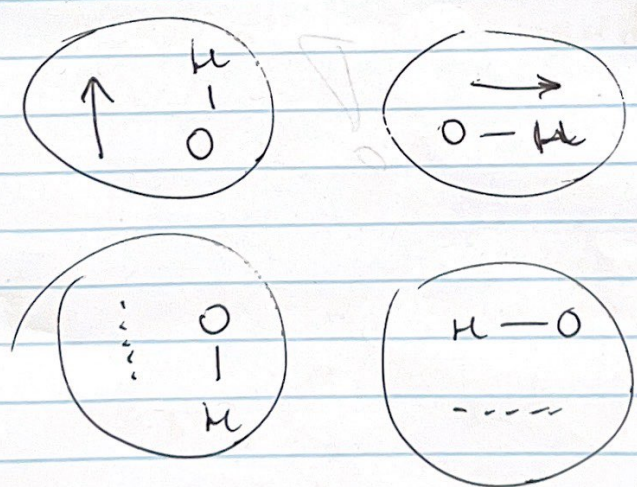 H
O
O — H
O
H
H — O